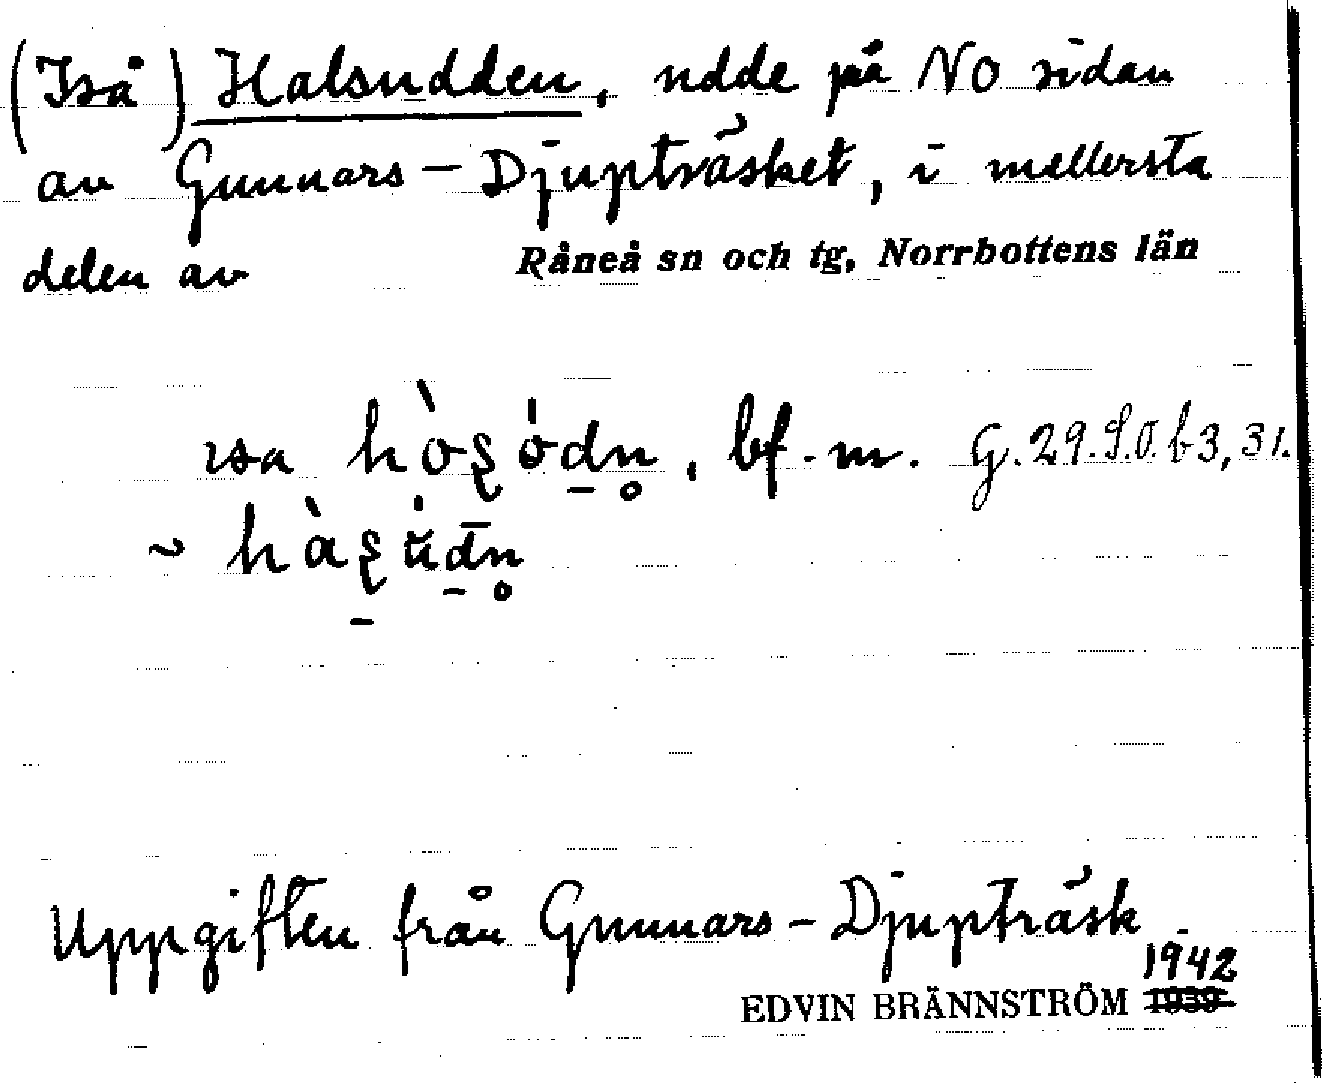 (Iså) Halsudden, udde på NO sidan
av Gunnars-Djupträsket, i mellersta
delen av Råneå sn och tg, Norrbottens län
bf. m. G. 29.
~
Uppgiften från Gunnars-Djupträsk
1942
EDVIN BRÄNNSTRÖM 1939